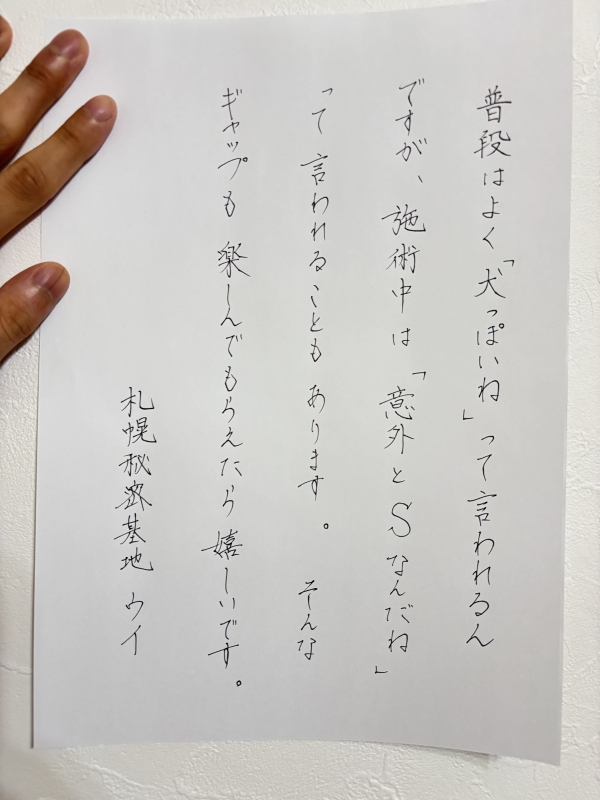 普段はよく「犬っぽいね」って言われるん
ですが、施術中は「意外とSなんだね」
って言われることもあります。そんな
ギャップも楽しんでもらえたら嬉しいです。
札幌秘密基地 ウイ